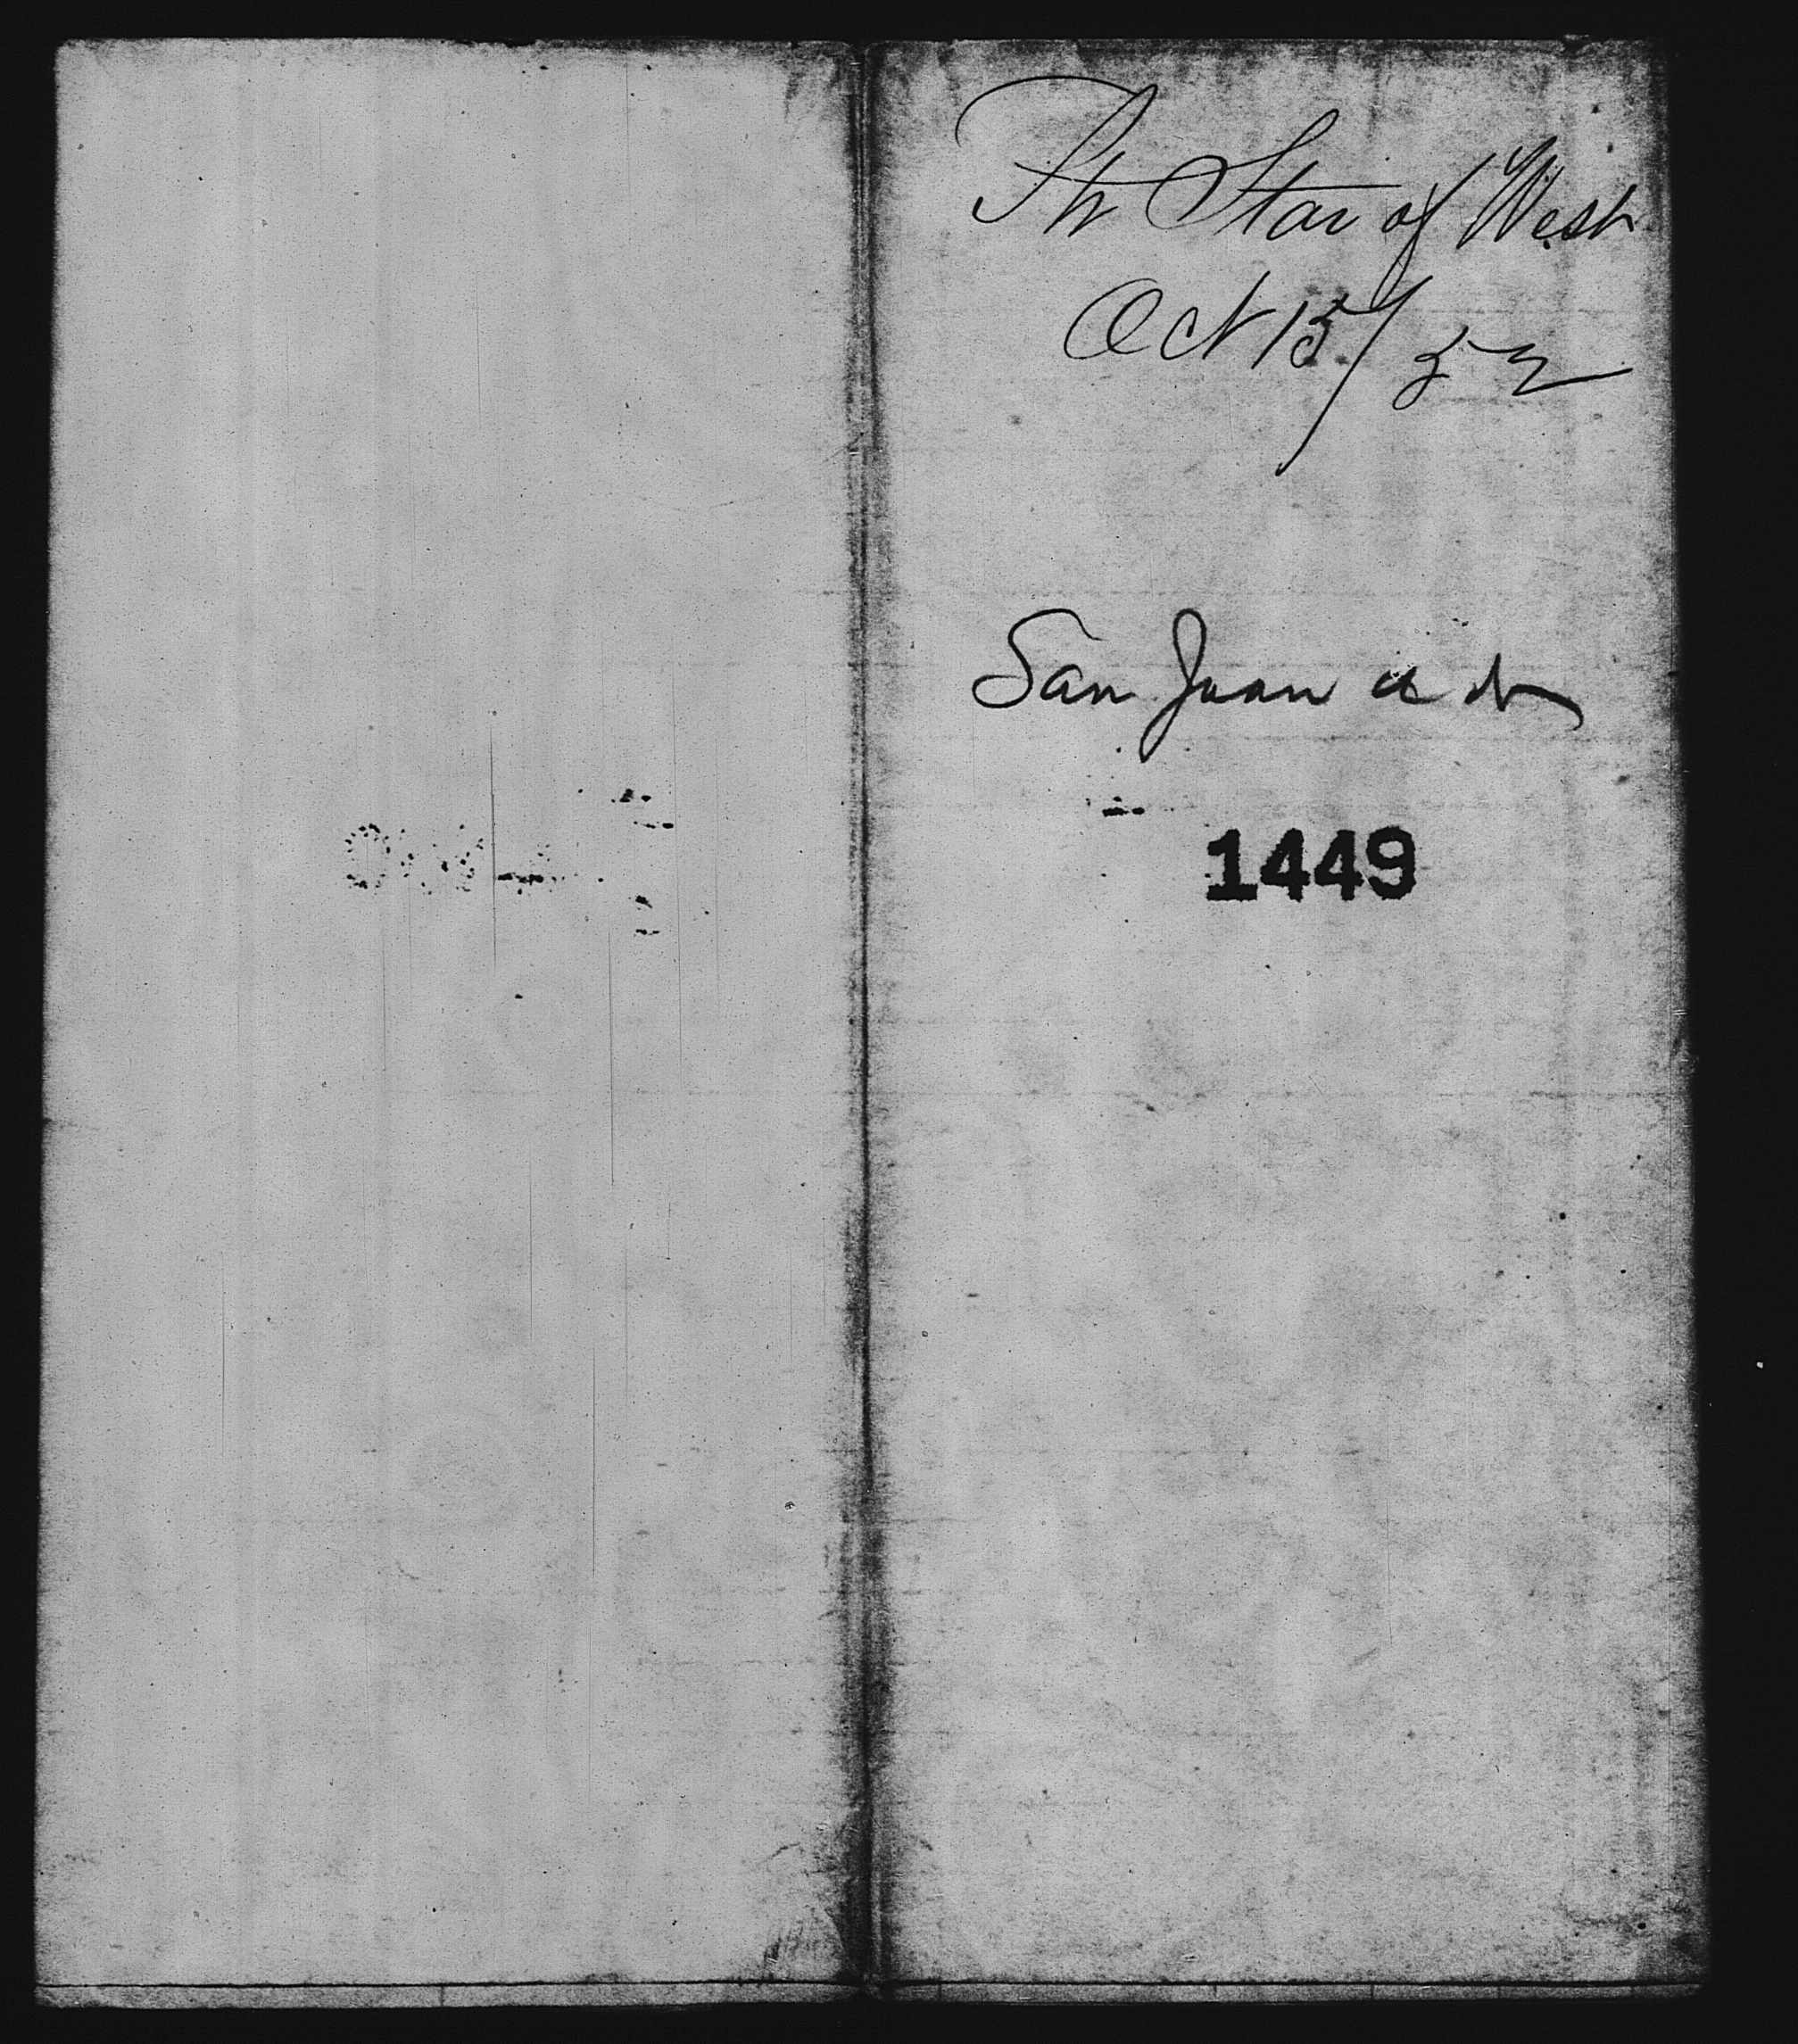 Str Star of West
Oct 15/52
San Juan d N
1449